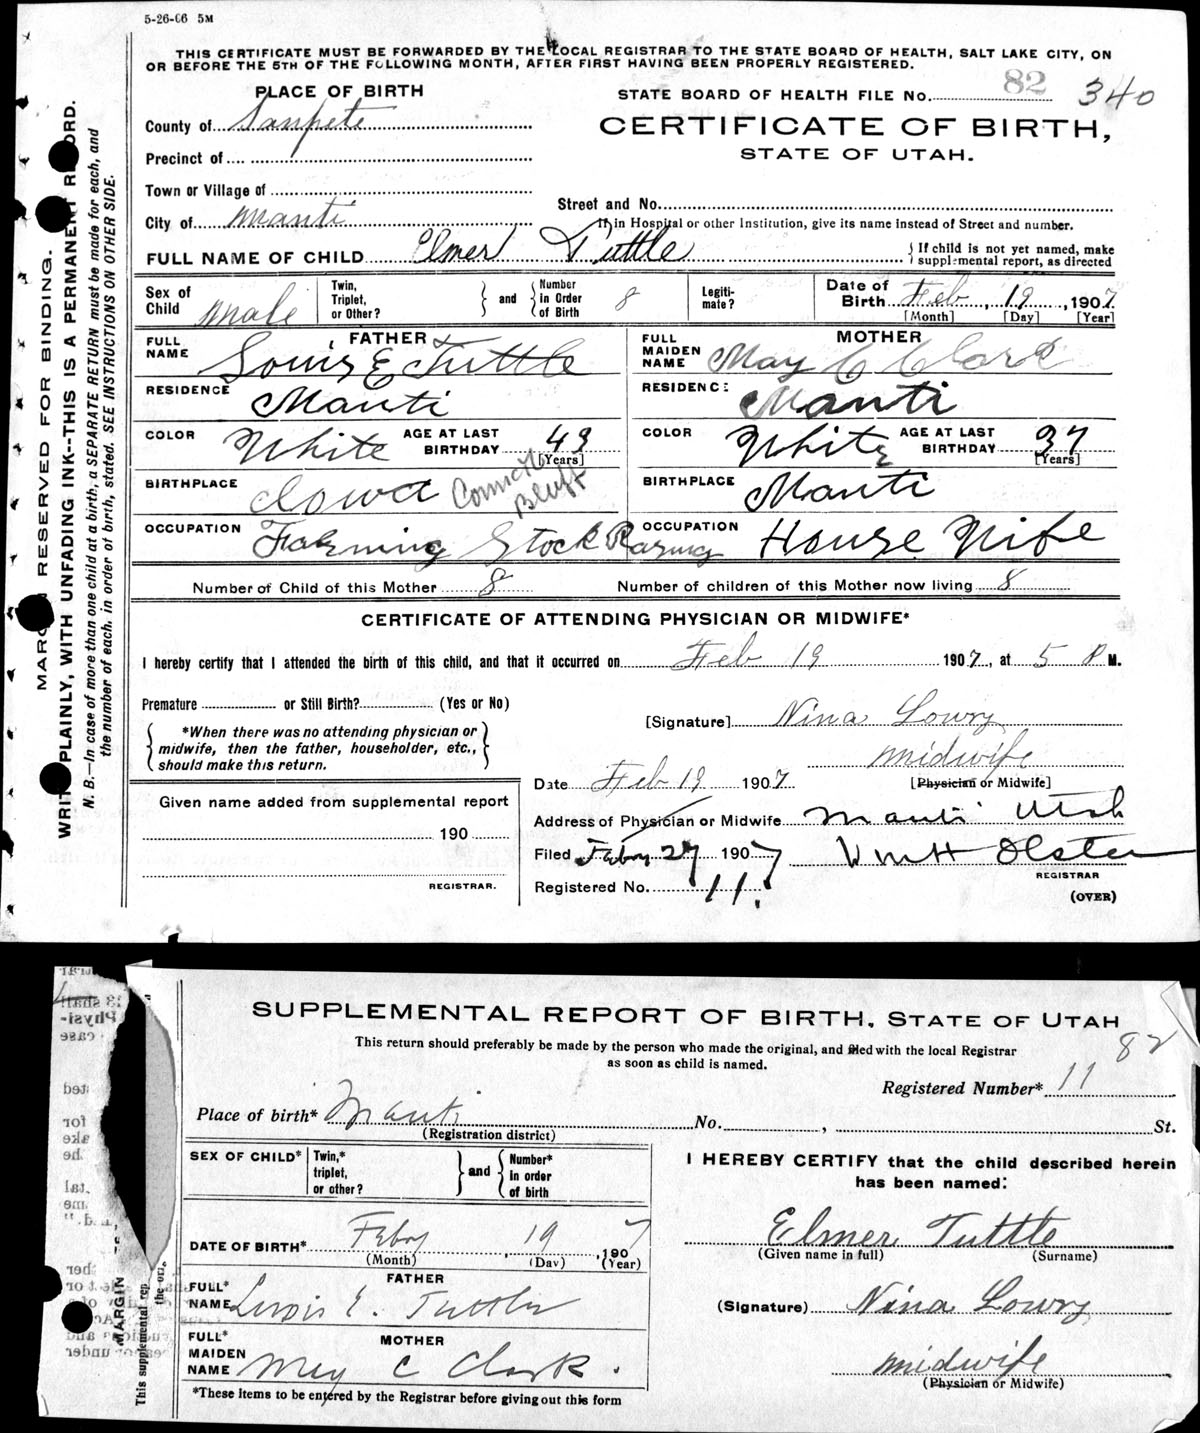 5-26-06 5M
THIS CERTIFICATE MUST BE FORWARDED BY THE LOCAL REGISTRAR TO THE STATE BOARD OF HEALTH, SALT LAKE CITY, ON
OR BEFORE THE 5TH OF THE FOLLOWING MONTH, AFTER FIRST HAVING BEEN PROPERLY REGISTERED.
PLACE OF BIRTH
STATE BOARD OF HEALTH FILE No. 82 340
County of Sanpete
CERTIFICATE OF BIRTH,
STATE OF UTAH.
Precinct of
Town or Village of
Street and No.
City of Manti
If in Hospital or other Institution, give its name instead of Street and number.
FULL NAME OF CHILD Elmer Tuttle
If child is not yet named, make
supplemental report, as directed
Sex of Child Male
Twin, Triplet, or Other?
and
Number in Order of Birth 8
Legitimate?
Date of Birth Feb, 19, 1907
[Month] [Day] [Year]
FATHER
FULL NAME Louis E Tuttle
MOTHER
FULL MAIDEN NAME May C Clark
RESIDENCE Manti
RESIDENCE Manti
COLOR White AGE AT LAST BIRTHDAY 43 [Years]
COLOR White AGE AT LAST BIRTHDAY 37 [Years]
BIRTHPLACE Iowa Council Bluff
BIRTHPLACE Manti
OCCUPATION Farming Stock Rasing
OCCUPATION House Wife
Number of Child of this Mother 8
Number of children of this Mother now living 8
CERTIFICATE OF ATTENDING PHYSICIAN OR MIDWIFE*
I hereby certify that I attended the birth of this child, and that it occurred on Feb 19 1907, at 5 P M.
Premature or Still Birth? (Yes or No)
[Signature] Nina Lowry
*When there was no attending physician or
midwife, then the father, householder, etc.,
should make this return.
midwife
[Physician or Midwife]
Date Feb 19 1907
Given name added from supplemental report
190
REGISTRAR.
Address of Physician or Midwife Manti Utah
Filed Febry 27 1907
REGISTRAR
Registered No. 11.
(OVER)
MARGIN RESERVED FOR BINDING.
WRITE PLAINLY, WITH UNFADING INK--THIS IS A PERMANENT RECORD.
N. B.—In case of more than one child at birth, a SEPARATE RETURN must be made for each, and
the number of each, in order of birth, stated. SEE INSTRUCTIONS ON OTHER SIDE.
SUPPLEMENTAL REPORT OF BIRTH, STATE OF UTAH
This return should preferably be made by the person who made the original, and filed with the local Registrar
as soon as child is named.
82
Registered Number* 11
Place of birth* Manti
(Registration district)
No. , St.
SEX OF CHILD*
Twin,* triplet, or other?
and
Number* in order of birth
I HEREBY CERTIFY that the child described herein
has been named:
DATE OF BIRTH* Febry, 19, 1907
(Month) (Day) (Year)
Elmer Tuttle
(Given name in full) (Surname)
FATHER
FULL* NAME Lewis E. Tuttle
(Signature) Nina Lowry
MOTHER
FULL* MAIDEN NAME May C Clark.
midwife
(Physician or Midwife)
*These items to be entered by the Registrar before giving out this form
MARGIN
This supplemental rep
the ori